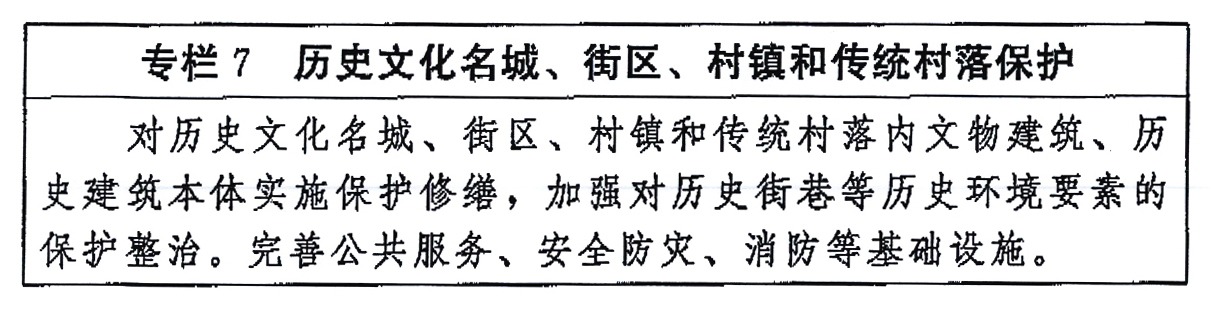 专栏 7 历史文化名城、街区、村镇和传统村落保护
对历史文化名城、街区、村镇和传统村落内文物建筑、历
史建筑本体实施保护修缮，加强对历史街巷等历史环境要素的
保护整治。完善公共服务、安全防灾、消防等基础设施。